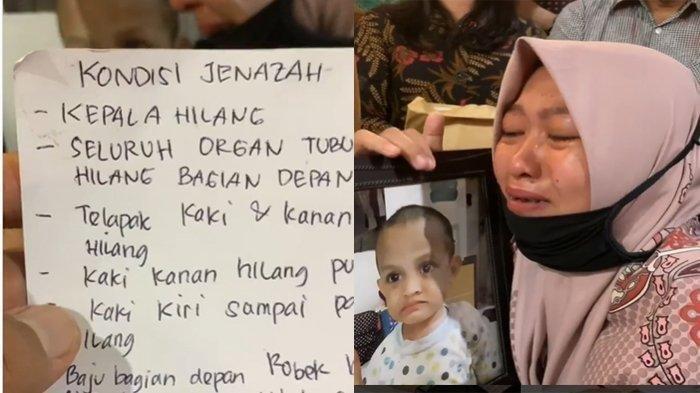 KONDISI JENAZAH
- KEPALA HILANG
- SELURUH ORGAN TUBU
HILANG BAGIAN DEPAN
- Telapak Kaki & Kanan
HILANG
- Kaki Kanan hilang
Kaki Kiri sampai
ilang
Baju bagian depan Robek